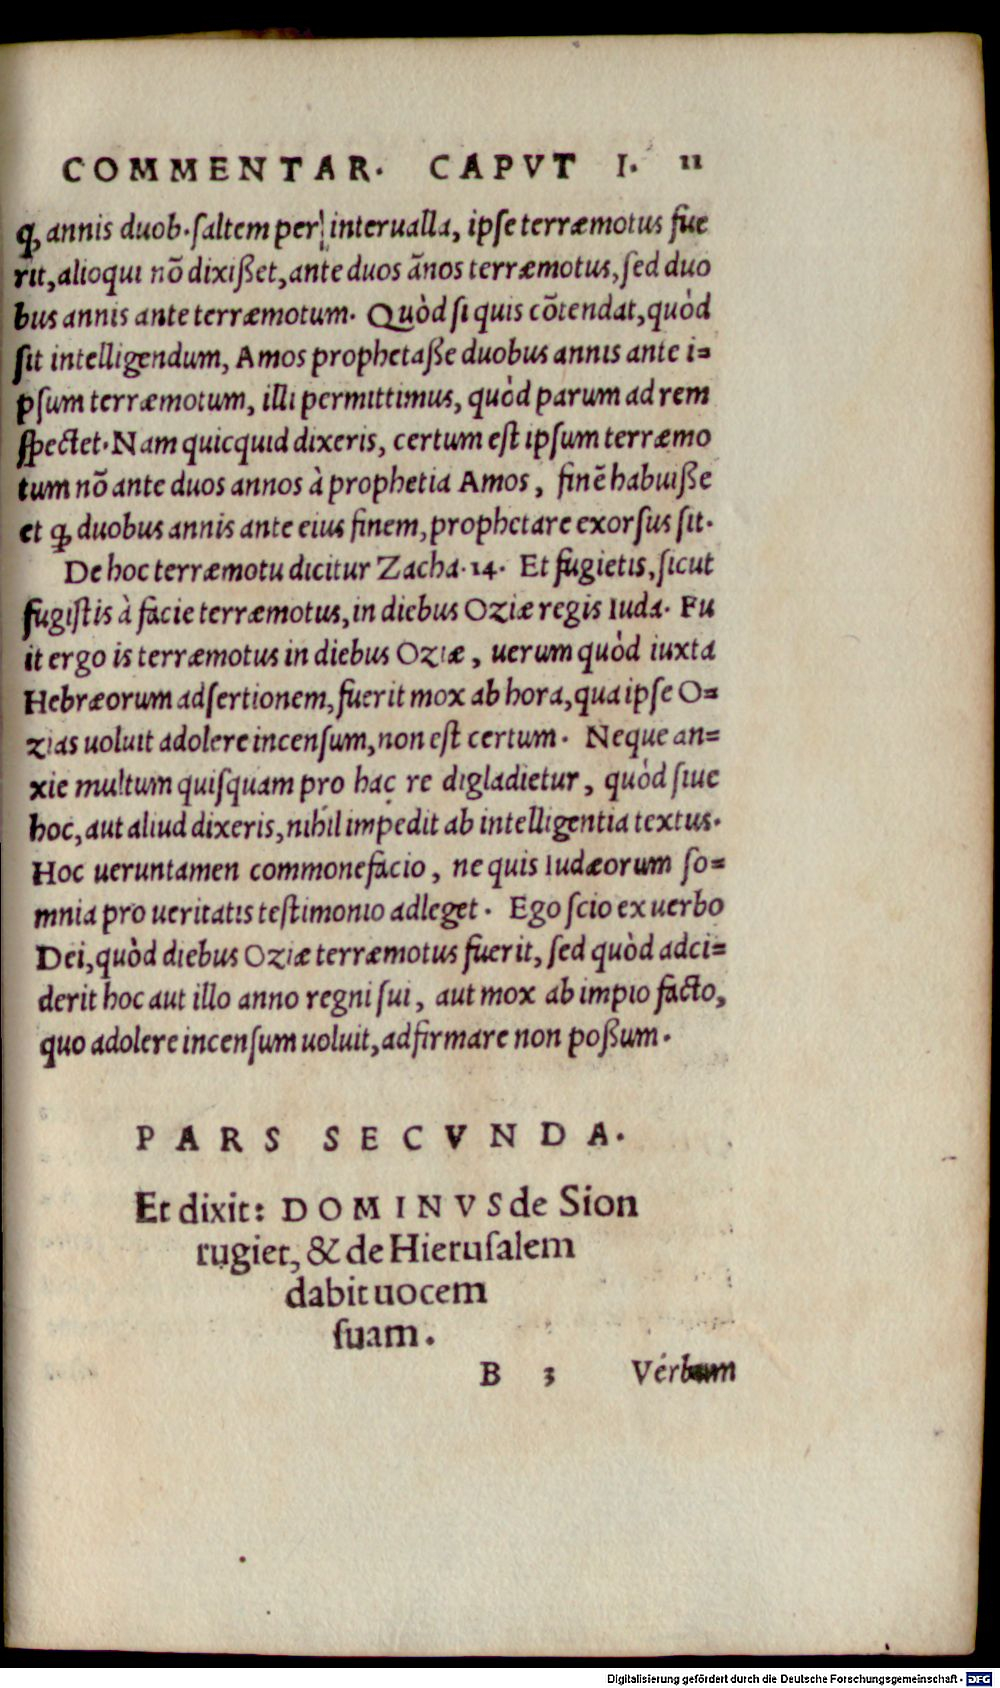 COMMENTAR. CAPVT I. 11
ꝙ annis duob. ſaltem per interualla, ipſe terræmotus fue
rit, alioqui nō dixiſſet, ante duos ānos terræmotus, ſed duo
bus annis ante terræmotum. Quòd ſi quis cōtendat, quòd
ſit intelligendum, Amos prophetaſſe duobus annis ante i=
pſum terræmotum, illi permittimus, quòd parum ad rem
ſpectet. Nam quicquid dixeris, certum eſt ipſum terræmo
tum nō ante duos annos à prophetia Amos, finē habuiſſe
et ꝙ duobus annis ante eius finem, prophetare exorſus ſit.
De hoc terræmotu dicitur Zacha. 14. Et fugietis, ſicut
fugiſtis à facie terræmotus, in diebus Oziæ regis Iuda. Fu
it ergo is terræmotus in diebus Oziæ, uerum quòd iuxta
Hebræorum adſertionem, fuerit mox ab hora, qua ipſe O=
zias uoluit adolere incenſum, non eſt certum. Neque an=
xie multum quiſquam pro hac re digladietur, quòd ſiue
hoc, aut aliud dixeris, nihil impedit ab intelligentia textus.
Hoc ueruntamen commonefacio, ne quis Iudæorum ſo=
mnia pro ueritatis teſtimonio adleget. Ego ſcio ex uerbo
Dei, quòd diebus Oziæ terræmotus fuerit, ſed quòd adci=
derit hoc aut illo anno regni ſui, aut mox ab impio facto,
quo adolere incenſum uoluit, adfirmare non poſſum.
PARS SECVNDA.
Et dixit: DOMINVS de Sion
rugiet, & de Hieruſalem
dabit uocem
ſuam.
B 3 Verbum
Digitalisierung gefördert durch die Deutsche Forschungsgemeinschaft - DFG